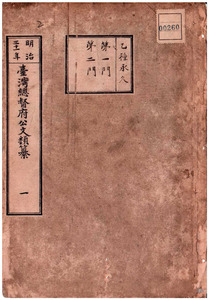 00260
乙種永久
第一門
第二門
明治
三十一年
臺灣總督府公文類纂
一